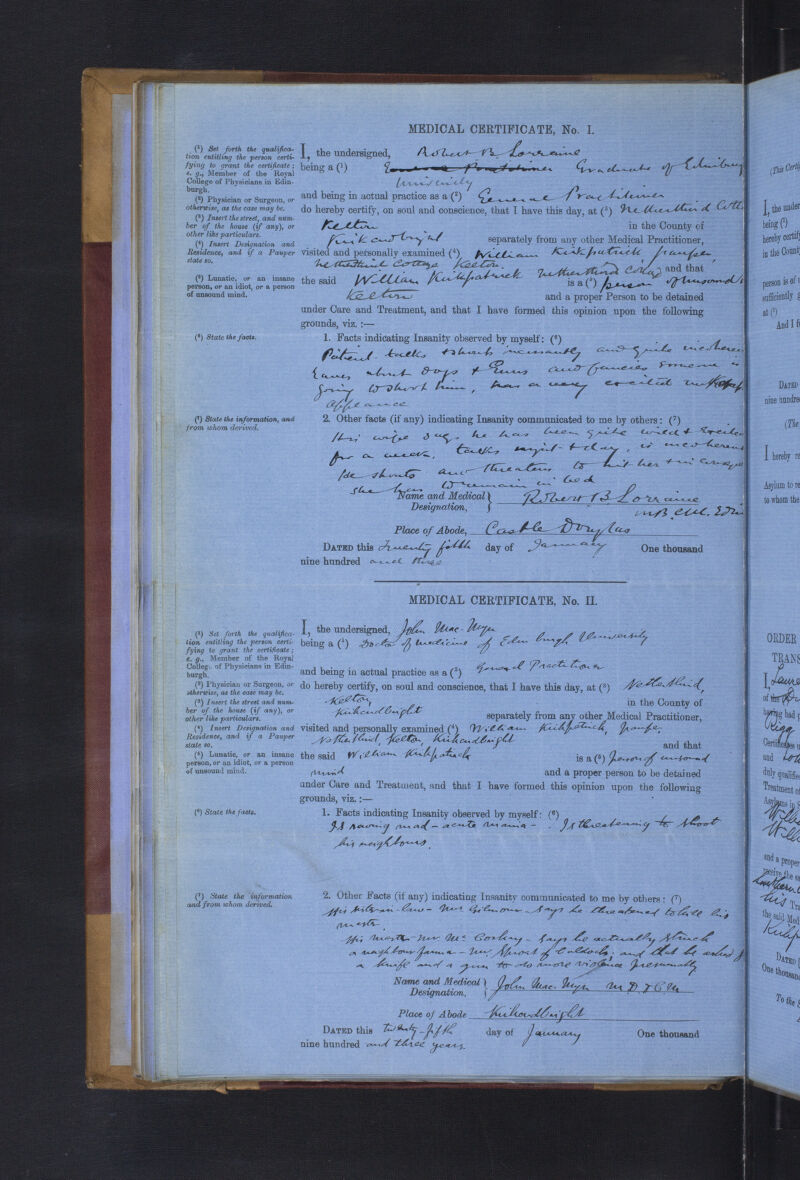 MEDICAL CERTIFICATE, No. I.
(¹) Set forth the qualifica-
tion entitling the person certi-
fying to grant the certificate;
e. g., Member of the Royal
College of Physicians in Edin-
burgh.
(²) Physician or Surgeon, or
otherwise, as the case may be.
(³) Insert the street, and num-
ber of the house (if any), or
other like particulars.
(⁴) Insert Designation and
Residence, and if a Pauper
state so.
(⁵) Lunatic, or an insane
person, or an idiot, or a person
of unsound mind.
I, the undersigned, Robert B. Lorraine
being a (¹) General Practitioner Graduate of Edinburg
University
and being in actual practice as a (²) General Practitioner
do hereby certify, on soul and conscience, that I have this day, at (³) Netherthird Cott
Kelton in the County of
Kirkcudbright separately from any other Medical Practitioner,
visited and personally examined (⁴) William Kirkpatrick, pauper,
Netherthird Cottage Kelton. and that
the said William Kirkpatrick Netherthird Cottage is a (⁵) person of unsound
Kelton and a proper Person to be detained
under Care and Treatment, and that I have formed this opinion upon the following
grounds, viz. :—
(⁶) State the facts.
1. Facts indicating Insanity observed by myself: (⁶)
Patient talks & shouts incessantly and quite incoheren
raves about dogs & guns and fancies someone is
going to shoot him, has a very excited
appearance
(⁷) State the information, and
from whom derived.
2. Other facts (if any) indicating Insanity communicated to me by others: (⁷)
His wife says he has been quite wild & excited
for a week. talks night & day, is incoherent
He shouts and threatens to hit her
she has to remain in bed
Name and Medical
Designation, Robert B. Lorraine
M.B. C.M. Edin
Place of Abode, Castle Douglas
DATED this Twenty fifth day of January One thousand
nine hundred and three
MEDICAL CERTIFICATE, No. II.
(¹) Set forth the qualifica-
tion entitling the person certi-
fying to grant the certificate;
e. g., Member of the Royal
College of Physicians in Edin-
burgh.
(²) Physician or Surgeon, or
otherwise, as the case may be.
(³) Insert the street and num-
ber of the house (if any), or
other like particulars.
(⁴) Insert Designation and
Residence, and if a Pauper
state so.
(⁵) Lunatic, or an insane
person, or an idiot, or a person
of unsound mind.
I, the undersigned, John Mac-Myn
being a (¹) Doctor of medicine of Edinburgh University
and being in actual practice as a (²) General Practitioner
do hereby certify, on soul and conscience, that I have this day, at (³) Netherthird,
Kelton in the County of
Kirkcudbright separately from any other Medical Practitioner,
visited and personally examined (⁴) William Kirkpatrick, pauper,
Netherthird, Kelton Kirkcudbright and that
the said William Kirkpatrick is a (⁵) person of unsound
mind and a proper person to be detained
under Care and Treatment, and that I have formed this opinion upon the following
grounds, viz. :—
(⁶) State the facts.
1. Facts indicating Insanity observed by myself: (⁶)
Is raving mad - acute mania - Is threatening to shoot
his neighbours.
(⁷) State the information
and from whom derived.
2. Other Facts (if any) indicating Insanity communicated to me by others: (⁷)
His sister-in-law - Mrs Gilmour - says he threatened to kill his
master.
His master - Mr Mc - says he actually struck
a neighbour farmer - Mr and that he asked f
a knife and a gun to do more violence presumably
Name and Medical
Designation, John Mac-Myn M.D. & C.M
Place of Abode Kirkcudbright
DATED this twenty-fifth day of January One thousand
nine hundred and three years
(This Certi
I, the under
being (¹)
hereby certify
in the Count
person is of
sufficiently
at (³)
And I f
DATED
nine hundre
(The
I hereby re
Asylum to re
to whom the
ORDER
TRANS
I, Laure
of the
having had p
Rigg
Certificates u
and
duly qualifie
Treatment o
Asylums in S
Willi
and a proper
receive the
his Tra
the said Med
Kirkp
DATED
One thousan
To the S